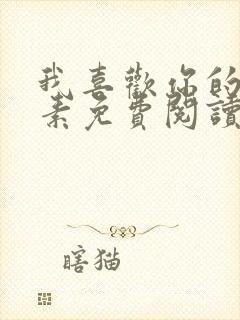 我喜歡你的
素免費閱讀
瞎猫